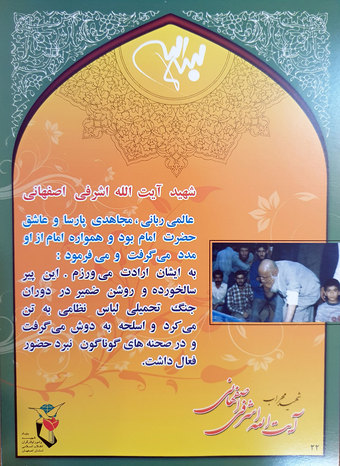 شهید آیت الله اشرفی اصفهانی
عالمی ربانی، مجاهدی پارسا و عاشق
حضرت امام بود و همواره امام از او
مدد می‌گرفت و می‌فرمود :
به ایشان ارادت می‌ورزم . این پیر
سالخورده و روشن ضمیر در دوران
جنگ تحمیلی لباس نظامی به تن
می‌کرد و اسلحه به دوش می‌گرفت
و در صحنه های گوناگون نبرد حضور
فعال داشت.
شهید محراب
آیت الله اشرفی اصفهانی
۲۲